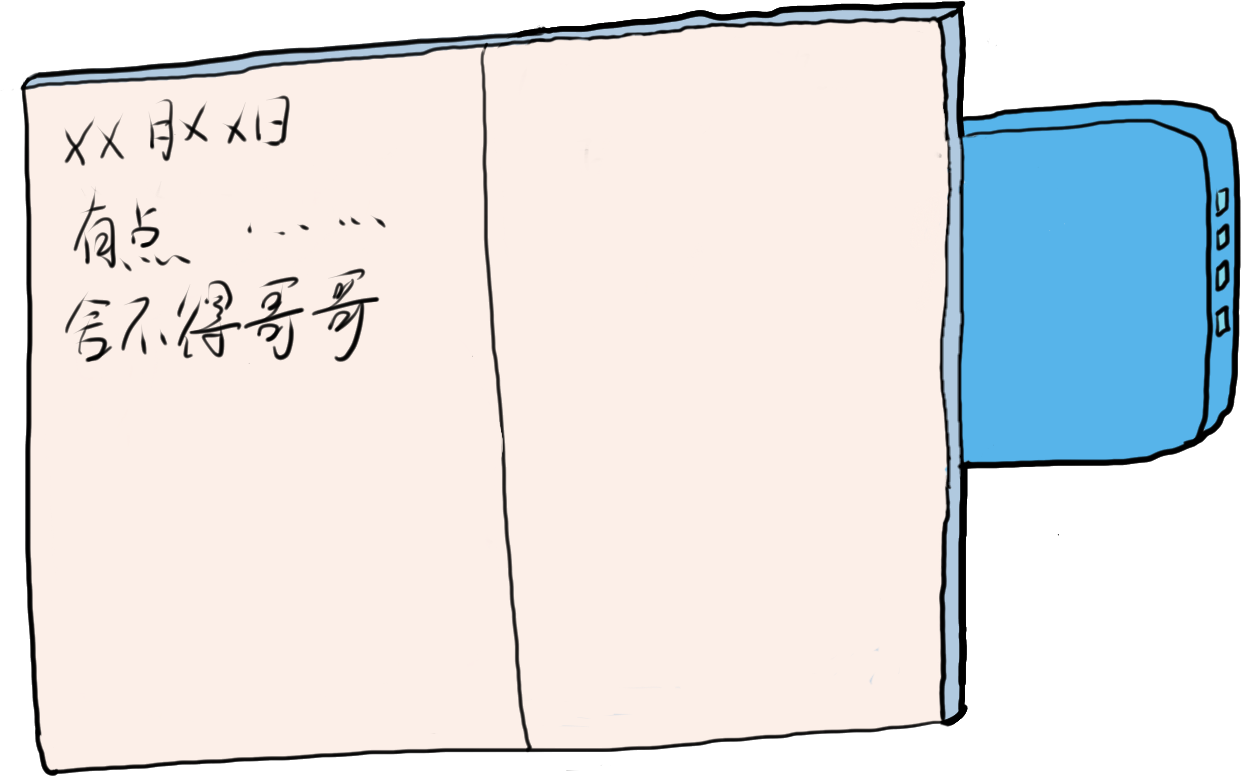 XX月XX日
有点 ……
舍不得哥哥